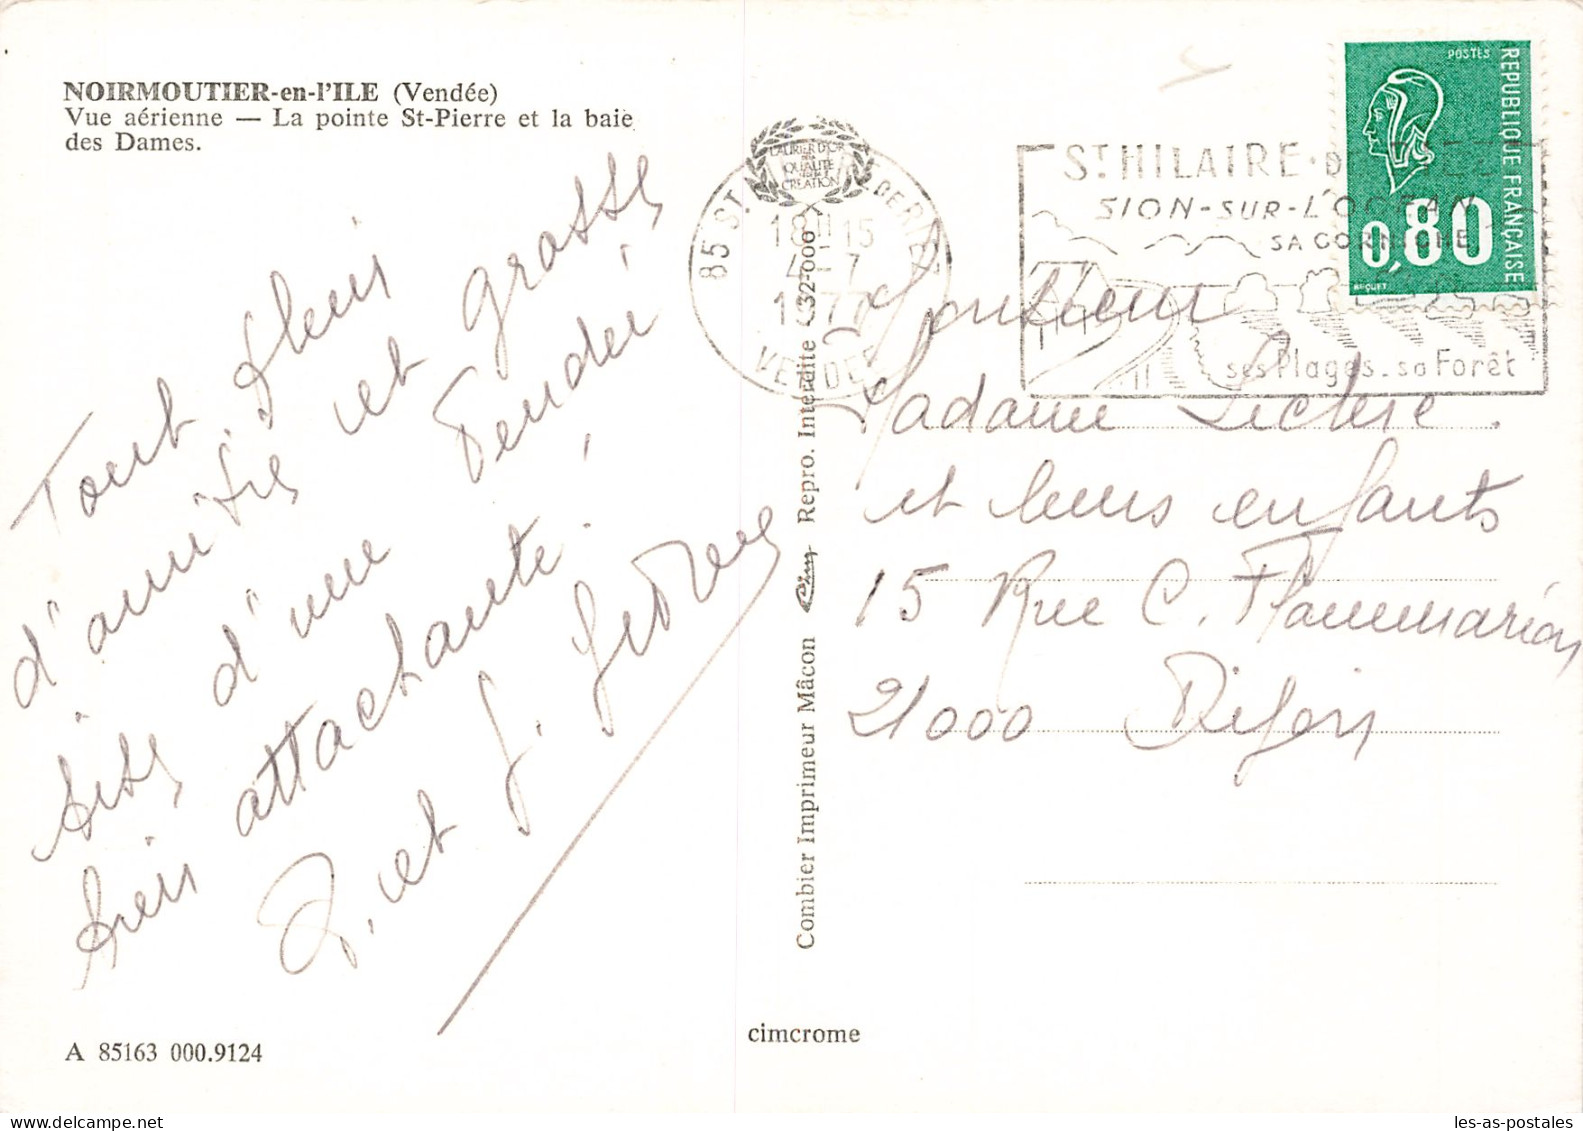 NOIRMOUTIER-en-l'ILE (Vendée)
Vue aérienne — La pointe St-Pierre et la baie
des Dames.
Tout plein
d'amitiés et grosses
bises d'une Vendée
bien attachante!
R. et J.
A 85163 000.9124
Combier Imprimeur Mâcon Cim Repro. Interdite 32-000
cimcrome
LAURIER D'OR
DE LA
QUALITÉ
CRÉATION
85 ST
DE RIEZ
18H15
4-7
1977
VENDÉE
ST HILAIRE-DE-RIEZ
SION-SUR-L'OCEAN
SA CORNICHE
ses Plages - sa Forêt
POSTES
REPUBLIQUE FRANÇAISE
0,80
BEQUET
Monsieur
Madame Leclerc.
et leurs enfants
15 Rue C. Flammarion
21000 Dijon
les-as-postales